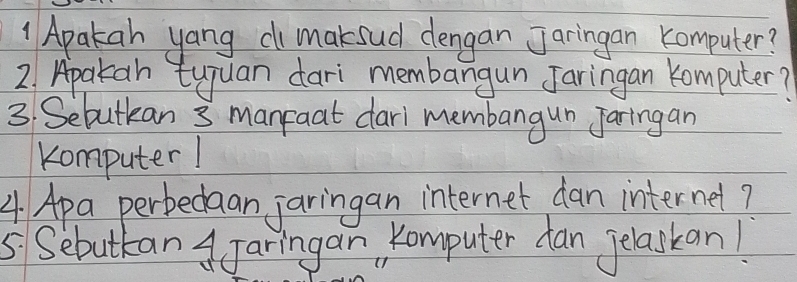 1 Apakah yang di maksud dengan Jaringan Komputer?
2. Apakah tujuan dari membangun Jaringan Komputer?
3. Sebutkan 3 manfaat dari membangun Jaringan
Komputer!
4. Apa perbedaan jaringan internet dan internet?
5. Sebutkan 4 Jaringan Komputer dan jelaskan!